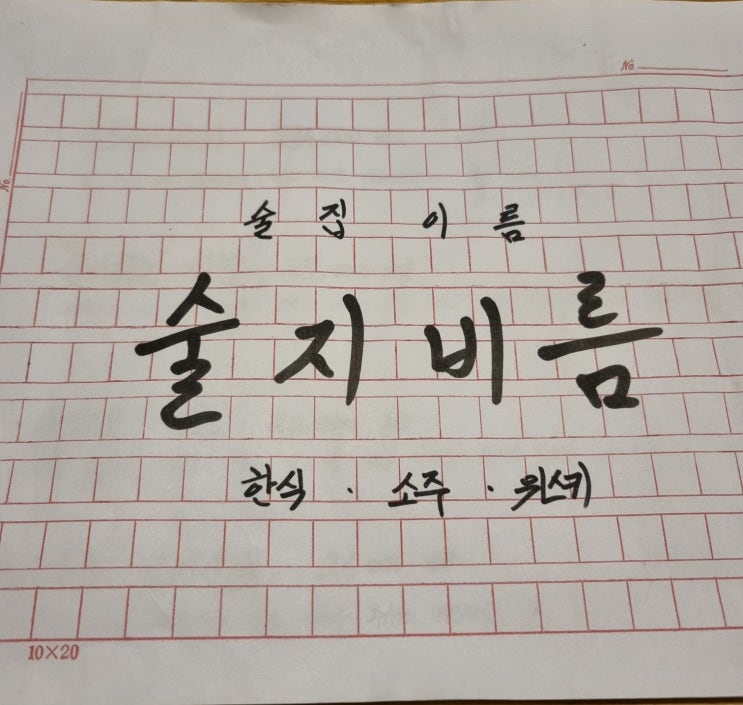 No.
No.
술집 이름
술지비름
한식 · 소주 · 위스키
10×20